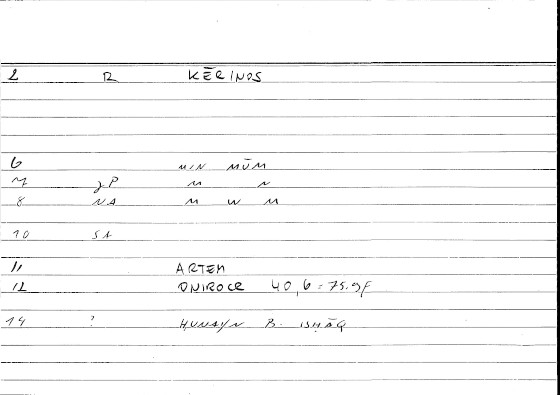 2 R KĒRINOS
6 MIN MŪM
7 JP M N
8 NA M W M
10 SA
11 ARTEM
12 ONIROCR 40,6 = 75.9F
14 ? ḤUNAYN B. ISḤĀQ